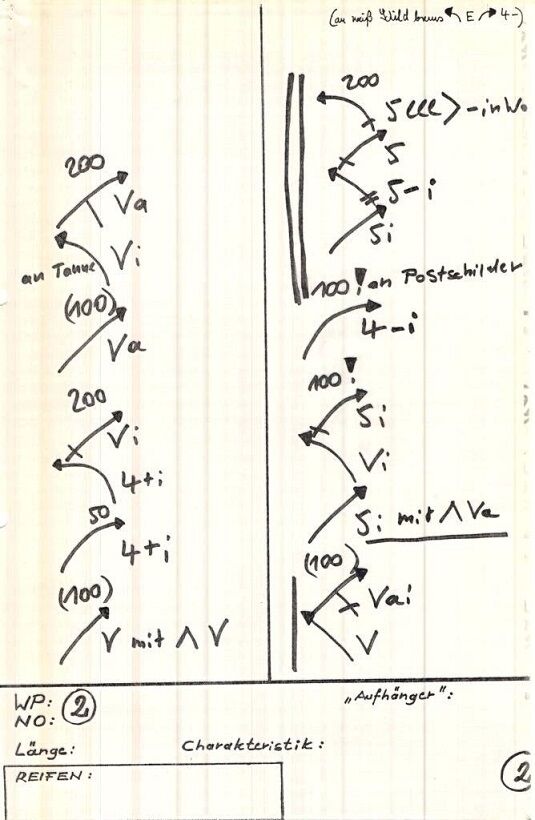 200
Va
Vi
an Tanne
(100)
Va
200
Vi
4+i
50
4+i
(100)
V mit Λ V
E 4-)
200
5
5-i
5i
100! an Postschilder
4-i
100!
5i
Vi
5i mit Λ Va
(100)
Vai
V
WP: 2
NO:
„Aufhänger":
Länge: Charakteristik:
REIFEN:
2